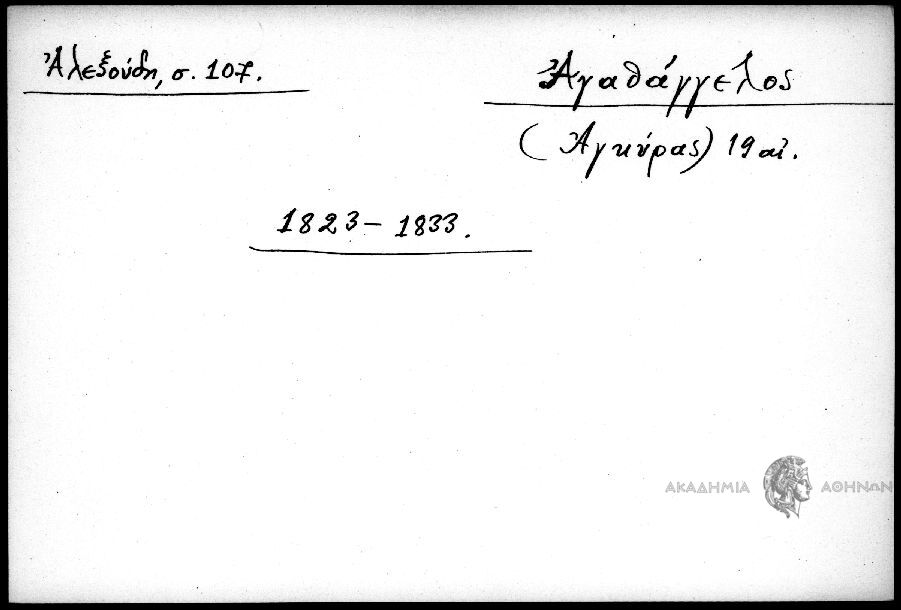 Ἀλεξούδη, σ. 107.
Ἀγαθάγγελος
(Ἀγκύρας) 19 αἰ.
1823 – 1833.
ΑΚΑΔΗΜΙΑ ΑΘΗΝΩΝ